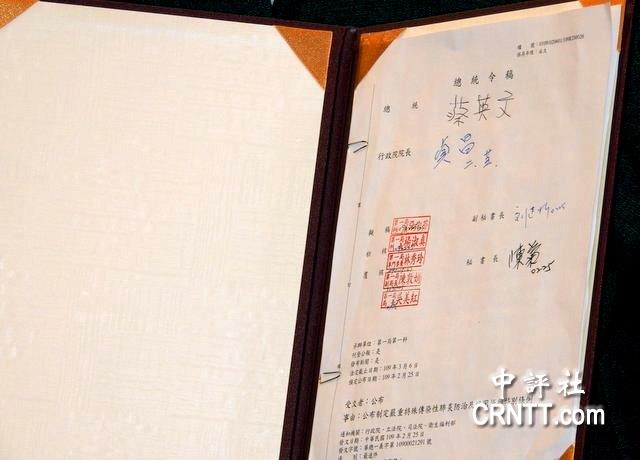 總統令稿
總統 蔡英文
行政院院長 貞昌 二.廿五.
副秘書長
擬稿
秘書長 陳菊 0225
核稿
覆核
承辦單位：第一局第一科
刊登公報：是
發布新聞：是
法定截止日期：109年3月6日
預定公布日期：109年2月25日
受文者：公布
事由：公布制定嚴重特殊傳染性肺炎防治及
特別條例
通知機關：行政院、立法院、司法院、衛生福利部
發文日期：中華民國109年2月25日
發文字號：華總一義字第10900021291號
速別：最速件
中評社
CRNTT.com